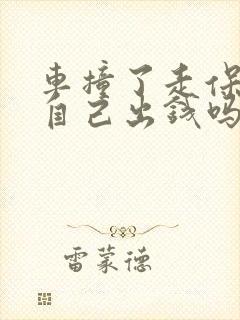 車撞了走保
自己出錢嗎
雷蒙德